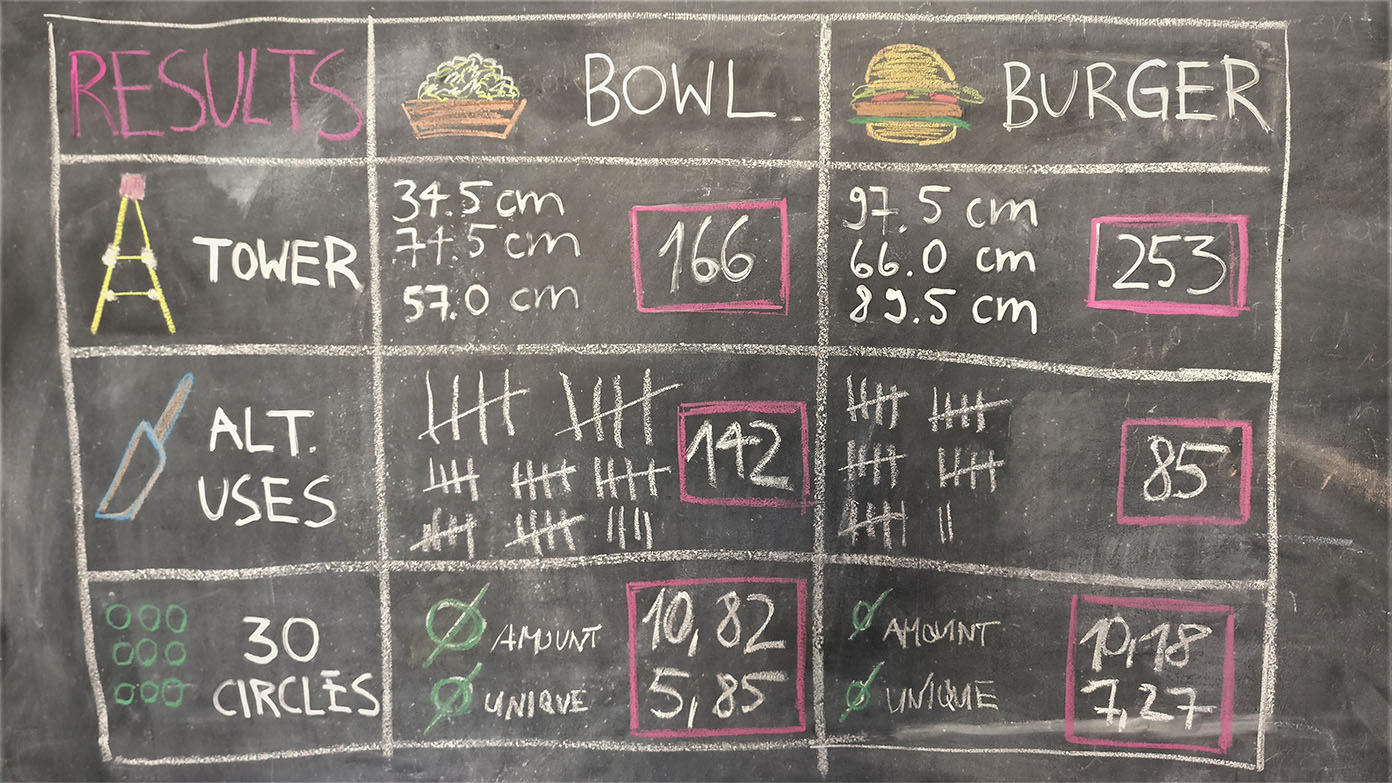 RESULTS
BOWL
BURGER
TOWER
34.5 cm
74.5 cm
57.0 cm
166
97.5 cm
66.0 cm
89.5 cm
253
ALT.
USES
142
85
30
CIRCLES
Ø AMOUNT
Ø UNIQUE
10,82
5,85
Ø AMOUNT
Ø UNIQUE
10,18
7,27